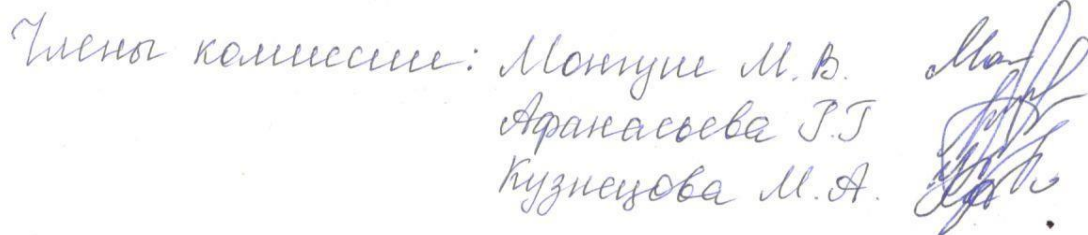 Члены комиссии: Монгуш М.В.
Афанасьева Р.Г
Кузнецова М.А.